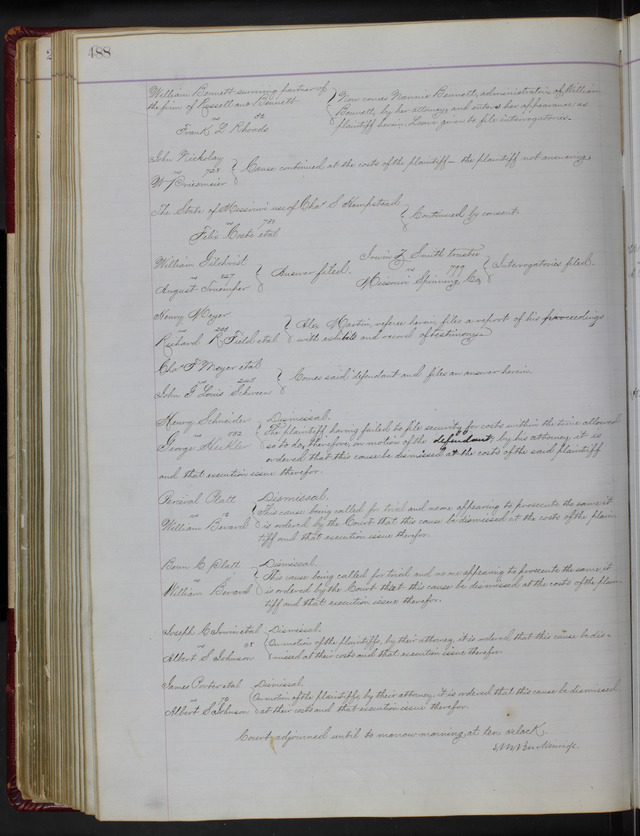 488
William Bennett surviving partner of
the firm of Russell and Bennett
vs 52
Frank L Rhoads
Now comes Nannie Bennett, administratrix of William
Bennett, by her attorney, and enters her appearance as
plaintiff herein. Leave given to file interrogatories.
John Nickolay
vs 723
Wm Driesmeier
Cause continued at the costs of the plaintiff – the plaintiff not answering
The State of Missouri use of Chas S Hempstead
vs 793
Felix Coste etal
Continued by consent.
William Gilchrist
vs 827
August Truemper
Answer filed.
Irwin Z Smith trustee
vs 1799
Missouri Spinning Co
Interrogatories filed.
Henry Meyer
vs 200
Richard R Field etal
Alex Martin, referee herein, files a report of his proceedings
with exhibits and record of testimony.
Chas F Meyer etal
vs
John G Louis
Comes said defendant and files an answer herein.
Henry Schneider
vs 082
George Heckler
Dismissal.
The plaintiff having failed to file security for costs within the time allowed
so to do, therefore, on motion of the defendant, by his attorney, it is
ordered that this cause be dismissed at the costs of the said plaintiff
and that execution issue therefor.
Percival Platt
vs
William Berard
Dismissal.
This cause being called for trial and none appearing to prosecute the same it
is ordered by the Court that this cause be dismissed at the costs of the plain
tiff and that execution issue therefor.
Benn C Platt
vs
William Berard
Dismissal
This cause being called for trial and no one appearing to prosecute the same, it
is ordered by the Court that this cause be dismissed at the costs of the plain
tiff and that execution issue therefor.
Joseph C etal
vs
Albert S Johnson
Dismissal.
On motion of the plaintiffs, by their attorney, it is ordered that this cause be dis-
missed at their costs and that execution issue therefor.
James Porter etal
vs 79
Albert S Johnson
Dismissal
On motion of the plaintiffs, by their attorney, it is ordered that this cause be dismissed
at their costs and that execution issue therefor.
Court adjourned until to morrow morning at ten oclock.